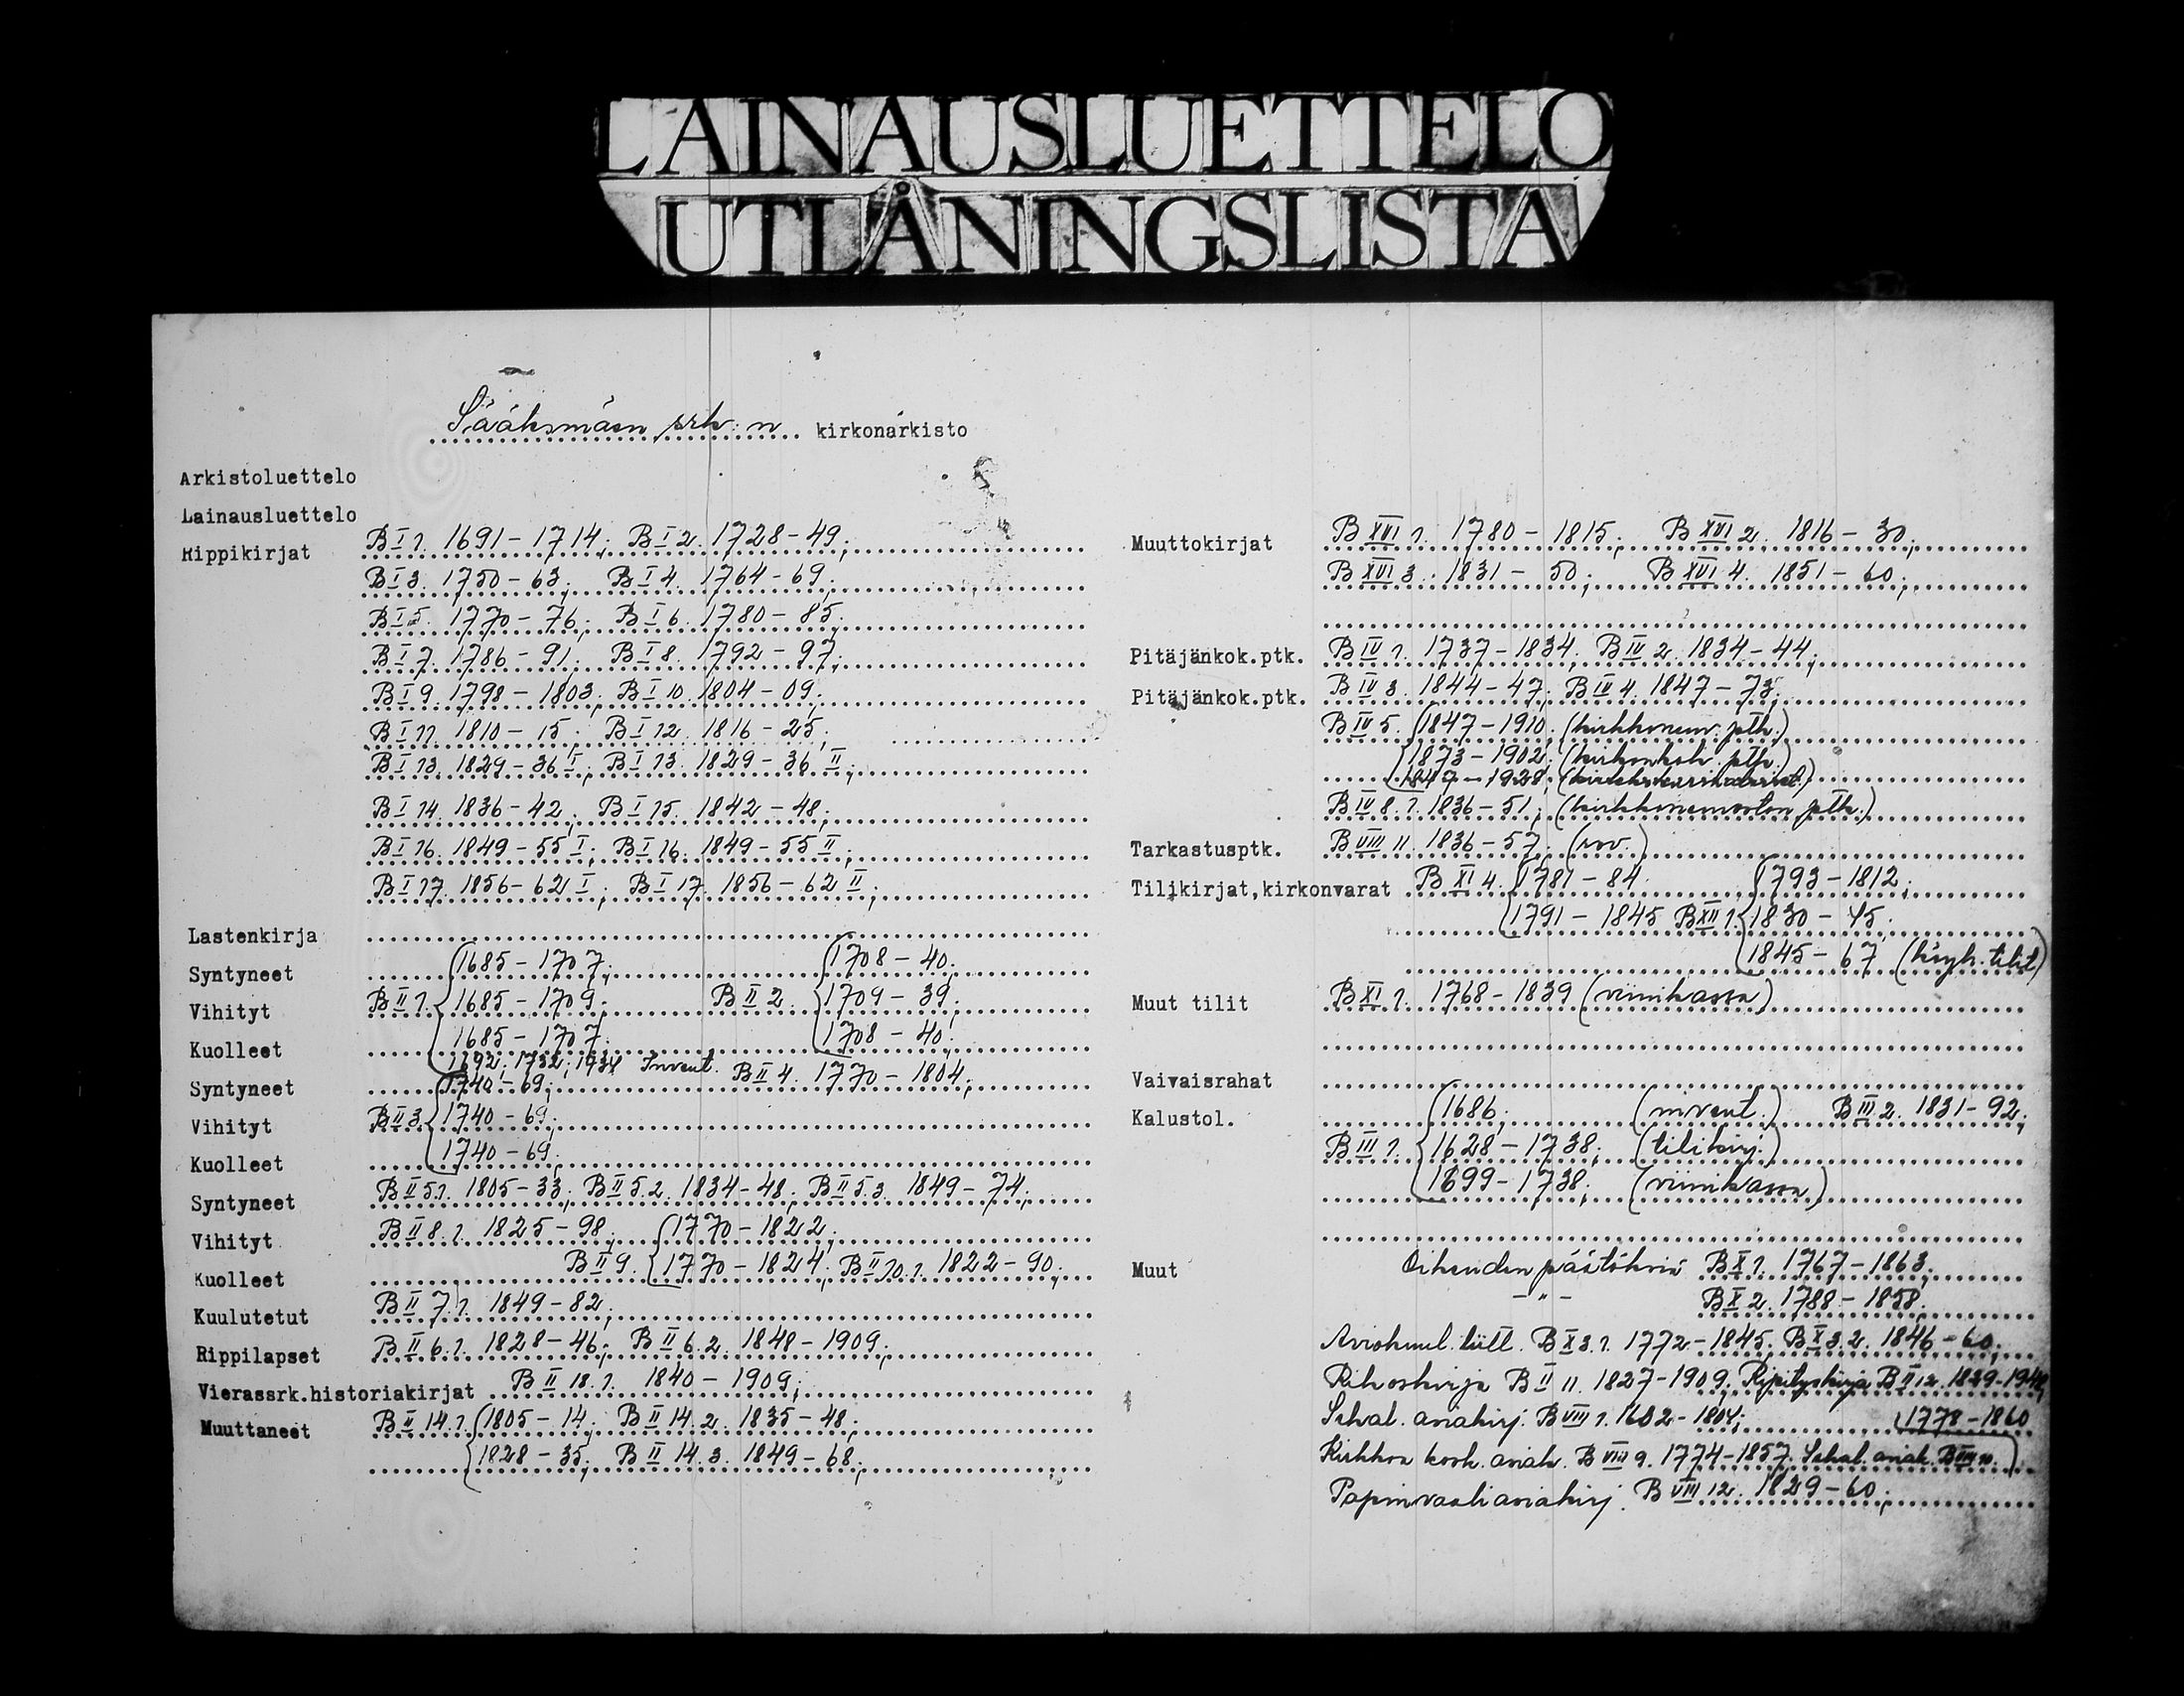 LAINAUSLUETTELO
UTLÅNINGSLISTA
Sääksmäen srk:n kirkonarkisto
Arkistoluettelo
Lainausluettelo
Rippikirjat B I 1. 1691-1714; B I 2. 1728-49;
B I 3. 1750-63; B I 4. 1764-69;
B I 5. 1770-76; B I 6. 1780-85;
B I 7. 1786-91; B I 8. 1792-97;
B I 9. 1798-1803; B I 10. 1804-09;
B I 11. 1810-15; B I 12. 1816-25;
B I 13. 1829-36 I; B I 13. 1829-36 II;
B I 14. 1836-42; B I 15. 1842-48;
B I 16. 1849-55 I; B I 16. 1849-55 II;
B I 17. 1856-62 I; B I 17. 1856-62 II;
Lastenkirja
Syntyneet 1685-1707; 1708-40;
Vihityt B II 1. 1685-1709; B II 2. 1709-39;
Kuolleet 1685-1707; 1708-40;
1692; 1732; 1734 Invent.
Syntyneet 1740-69; B II 4. 1770-1804;
Vihityt B II 3. 1740-69;
Kuolleet 1740-69;
Syntyneet B II 5.1. 1805-33; B II 5.2. 1834-48; B II 5.3. 1849-74;
Vihityt B II 8.1. 1825-98; 1770-1822;
Kuolleet B II 9. 1770-1824; B II 10.1. 1822-90;
Kuulutetut B II 7.1. 1849-82;
Rippilapset B II 6.1. 1828-46; B II 6.2. 1848-1909;
Vierassrk.historiakirjat B II 18.1. 1840-1909;
Muuttaneet B II 14.1. 1805-14; B II 14.2. 1835-48;
1828-35; B II 14.3. 1849-68;
Muuttokirjat B XVI 1. 1780-1815; B XVI 2. 1816-30;
B XVI 3. 1831-50; B XVI 4. 1851-60;
Pitäjänkok.ptk. B IV 1. 1737-1834; B IV 2. 1834-44;
Pitäjänkok.ptk. B IV 3. 1844-47; B IV 4. 1847-73;
B IV 5. 1847-1910; (kirkkoneuv. ptk.)
1873-1902; (kirkonkok. ptk.)
1847-1928;
B IV 8.1. 1836-51; (kirkkoneuvoston ptk.)
Tarkastusptk. B VIII 11. 1836-57; (rov.)
Tilikirjat,kirkonvarat B XI 4. 1781-84 1793-1812;
1791-1845 B XII 1. 1830-45;
1845-67 (köyh. tilit)
Muut tilit B XI 1. 1768-1839 (viinikassa)
Vaivaisrahat
Kalustol. 1686; (invent.) B III 2. 1831-92;
B III 1. 1628-1738; (tilikirj.)
1699-1738; (viinikassa)
Muut Oikeuden päätöksiä B X 1. 1767-1863;
-"- B X 2. 1788-1858;
Aviokuul. tiitt. B X 3.1. 1772-1845; B X 3.2. 1846-60;
Rikoskirja B II 11. 1827-1909; Ripityskirja B II 12. 1829-1948;
Sekal. asiakirj. B VIII 1. 1602-1804; 1778-1860
Kirkkoa kosk. asiak. B VIII 9. 1774-1857; Sekal. asiak. B VIII 10.
Papinvaaliasiakirj. B VIII 12. 1829-60;